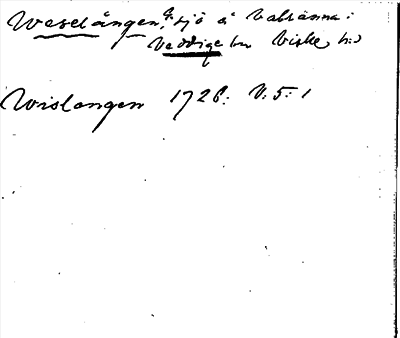 Weselången, sjö å Valsänna:
Veddige sn Viske hd
Wislangen 1726: V:5:1